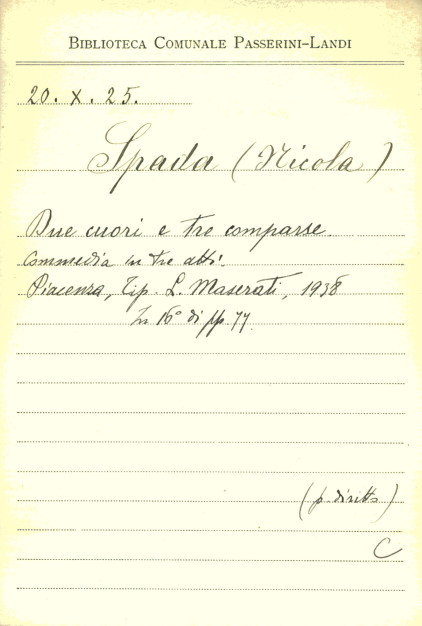 BIBLIOTECA COMUNALE PASSERINI-LANDI
20. X. 25.
Spada (Nicola)
Due cuori e tre comparse.
Commedia in tre atti.
Piacenza, Tip. L. Maserati, 1938
In 16° di pp. 77.
(p. diritto)
C